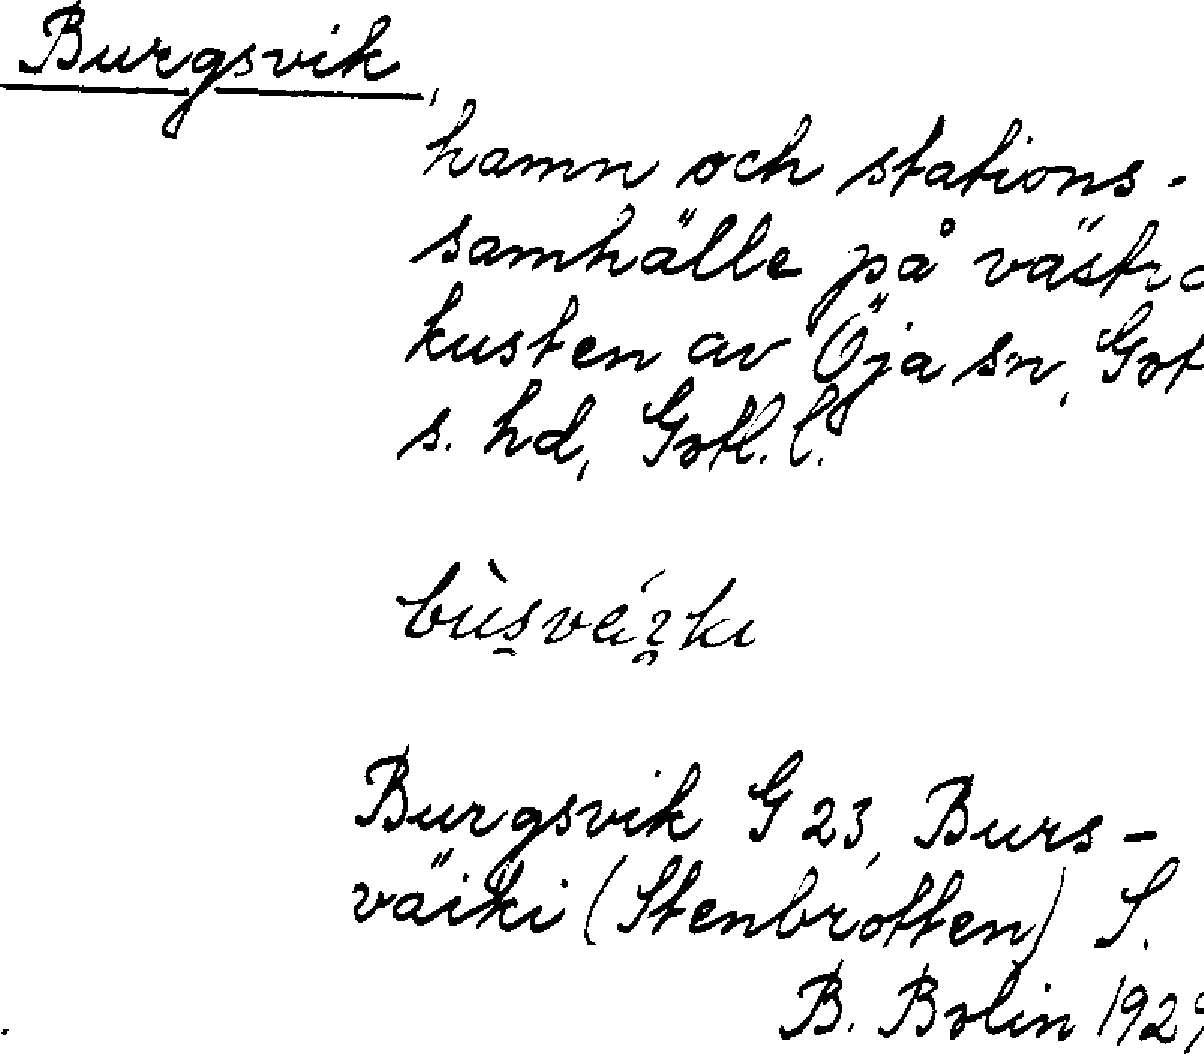 Burgsvik,
hamn och stations-
samhälle på västra
kusten av Öja sn, Gotl
s. hd, Gotl. l.
Burgsvik G 23, Burs-
väiki (Stenbrotten) S.
B. Bolin 1929